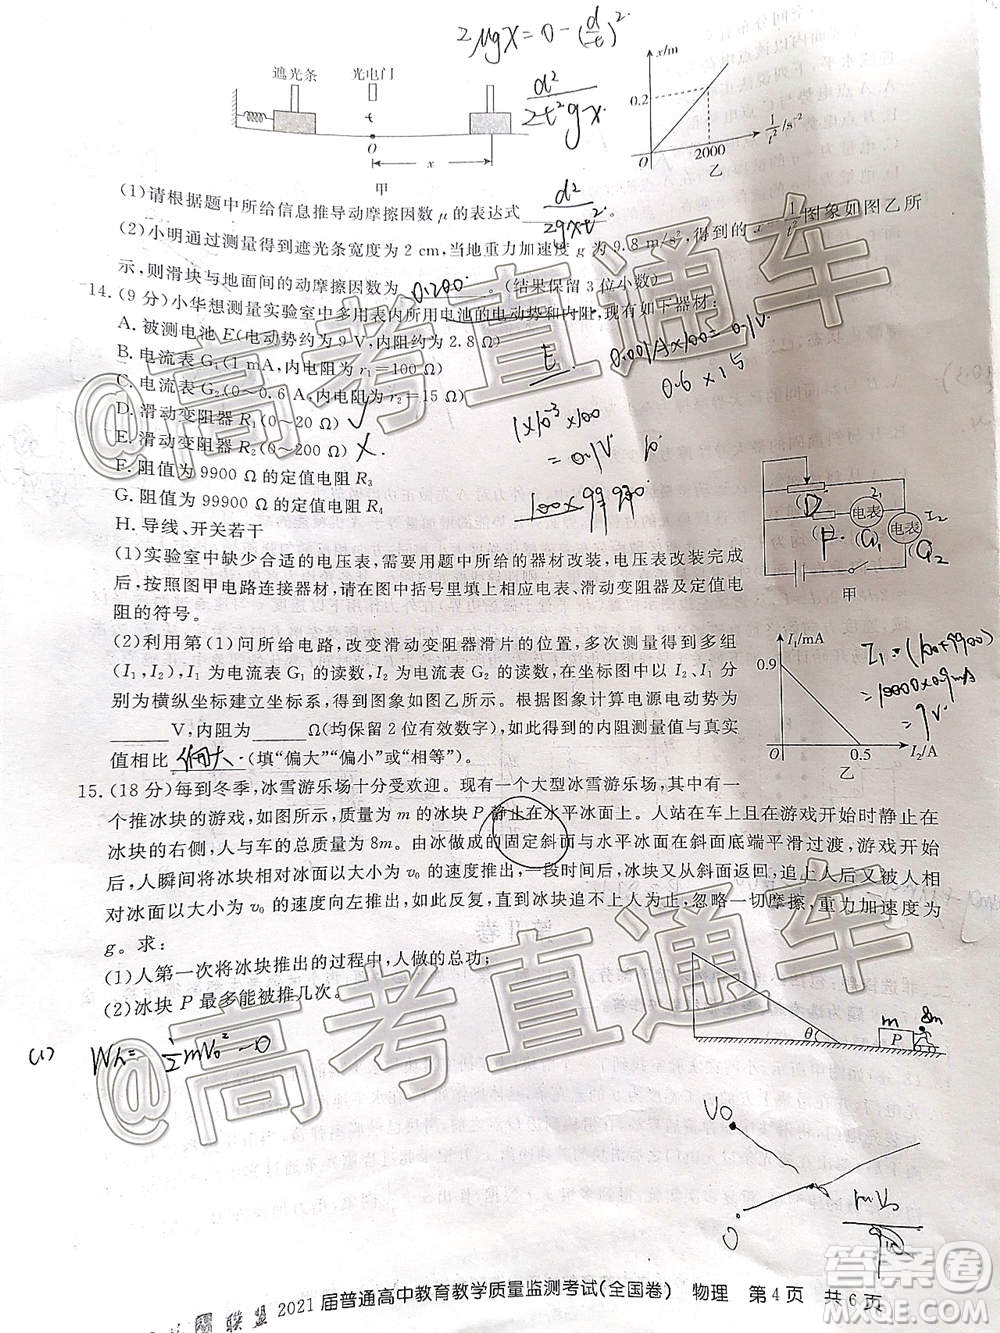 2μgx=0-(d/t)²
遮光条 光电门
d²
2t²gx
x/m
0.2
2000
1/t²/s⁻²
t
O
x
甲
乙
(1)请根据题中所给信息推导动摩擦因数 μ 的表达式 d²/2gxt² 。
(2)小明通过测量得到遮光条宽度为 2 cm,当地重力加速度 g 为 9.8 m/s²,得到的 x-1/t² 图象如图乙所
示,则滑块与地面间的动摩擦因数为 0.200 。(结果保留 3 位小数)
14.(9 分)小华想测量实验室中多用表内所用电池的电动势和内阻,现有如下器材:
A. 被测电池 E(电动势约为 9 V,内阻约为 2.8 Ω)
B. 电流表 G₁(1 mA,内电阻为 r₁=100 Ω)
C. 电流表 G₂(0～0.6 A,内电阻为 r₂=15 Ω)
D. 滑动变阻器 R₁(0～20 Ω)
E. 滑动变阻器 R₂(0～200 Ω)
F. 阻值为 9900 Ω 的定值电阻 R₃
G. 阻值为 99900 Ω 的定值电阻 R₄
H. 导线、开关若干
E
0.001A×100=0.1V
0.6×15
1×10⁻³×100
=0.1V
(1)实验室中缺少合适的电压表,需要用题中所给的器材改装,电压表改装完成
后,按照图甲电路连接器材,请在图中括号里填上相应电表、滑动变阻器及定值电
阻的符号。
D
F
电表
电表
G₁
G₂
I₁
I₂
甲
(2)利用第(1)问所给电路,改变滑动变阻器滑片的位置,多次测量得到多组
(I₁,I₂),I₁ 为电流表 G₁ 的读数,I₂ 为电流表 G₂ 的读数。在坐标图中以 I₁、I₂ 分
别为横纵坐标建立坐标系,得到图象如图乙所示。根据图象计算电源电动势为
______V,内阻为______Ω(均保留 2 位有效数字),如此得到的内阻测量值与真实
值相比 偏大 .(填“偏大”“偏小”或“相等”)。
I₁/mA
0.9
0.5
I₂/A
乙
I₁·(100+9900)
=10000×0.9mA
=9V
15.(18 分)每到冬季,冰雪游乐场十分受欢迎。现有一个大型冰雪游乐场,其中有
一个推冰块的游戏,如图所示,质量为 m 的冰块 P 静止在水平冰面上。人站在车上且在游戏开始时静止在
冰块的右侧,人与车的总质量为 8m。由冰做成的固定斜面与水平冰面在斜面底端平滑过渡,游戏开始
后,人瞬间将冰块相对冰面以大小为 v₀ 的速度推出,一段时间后,冰块又从斜面返回,追上人后人又将冰块相
对冰面以大小为 v₀ 的速度向左推出,如此反复,直到冰块追不上人为止。忽略一切摩擦,重力加速度为
g。求:
(1)人第一次将冰块推出的过程中,人做的总功;
(2)冰块 P 最多能被推几次。
θ
m
P
8m
(1) W人=½mv₀²-0
V₀
O
@高考直通车
@高考直通车
联盟 2021 届普通高中教育教学质量监测考试(全国卷) 物理 第 4 页 共 6 页